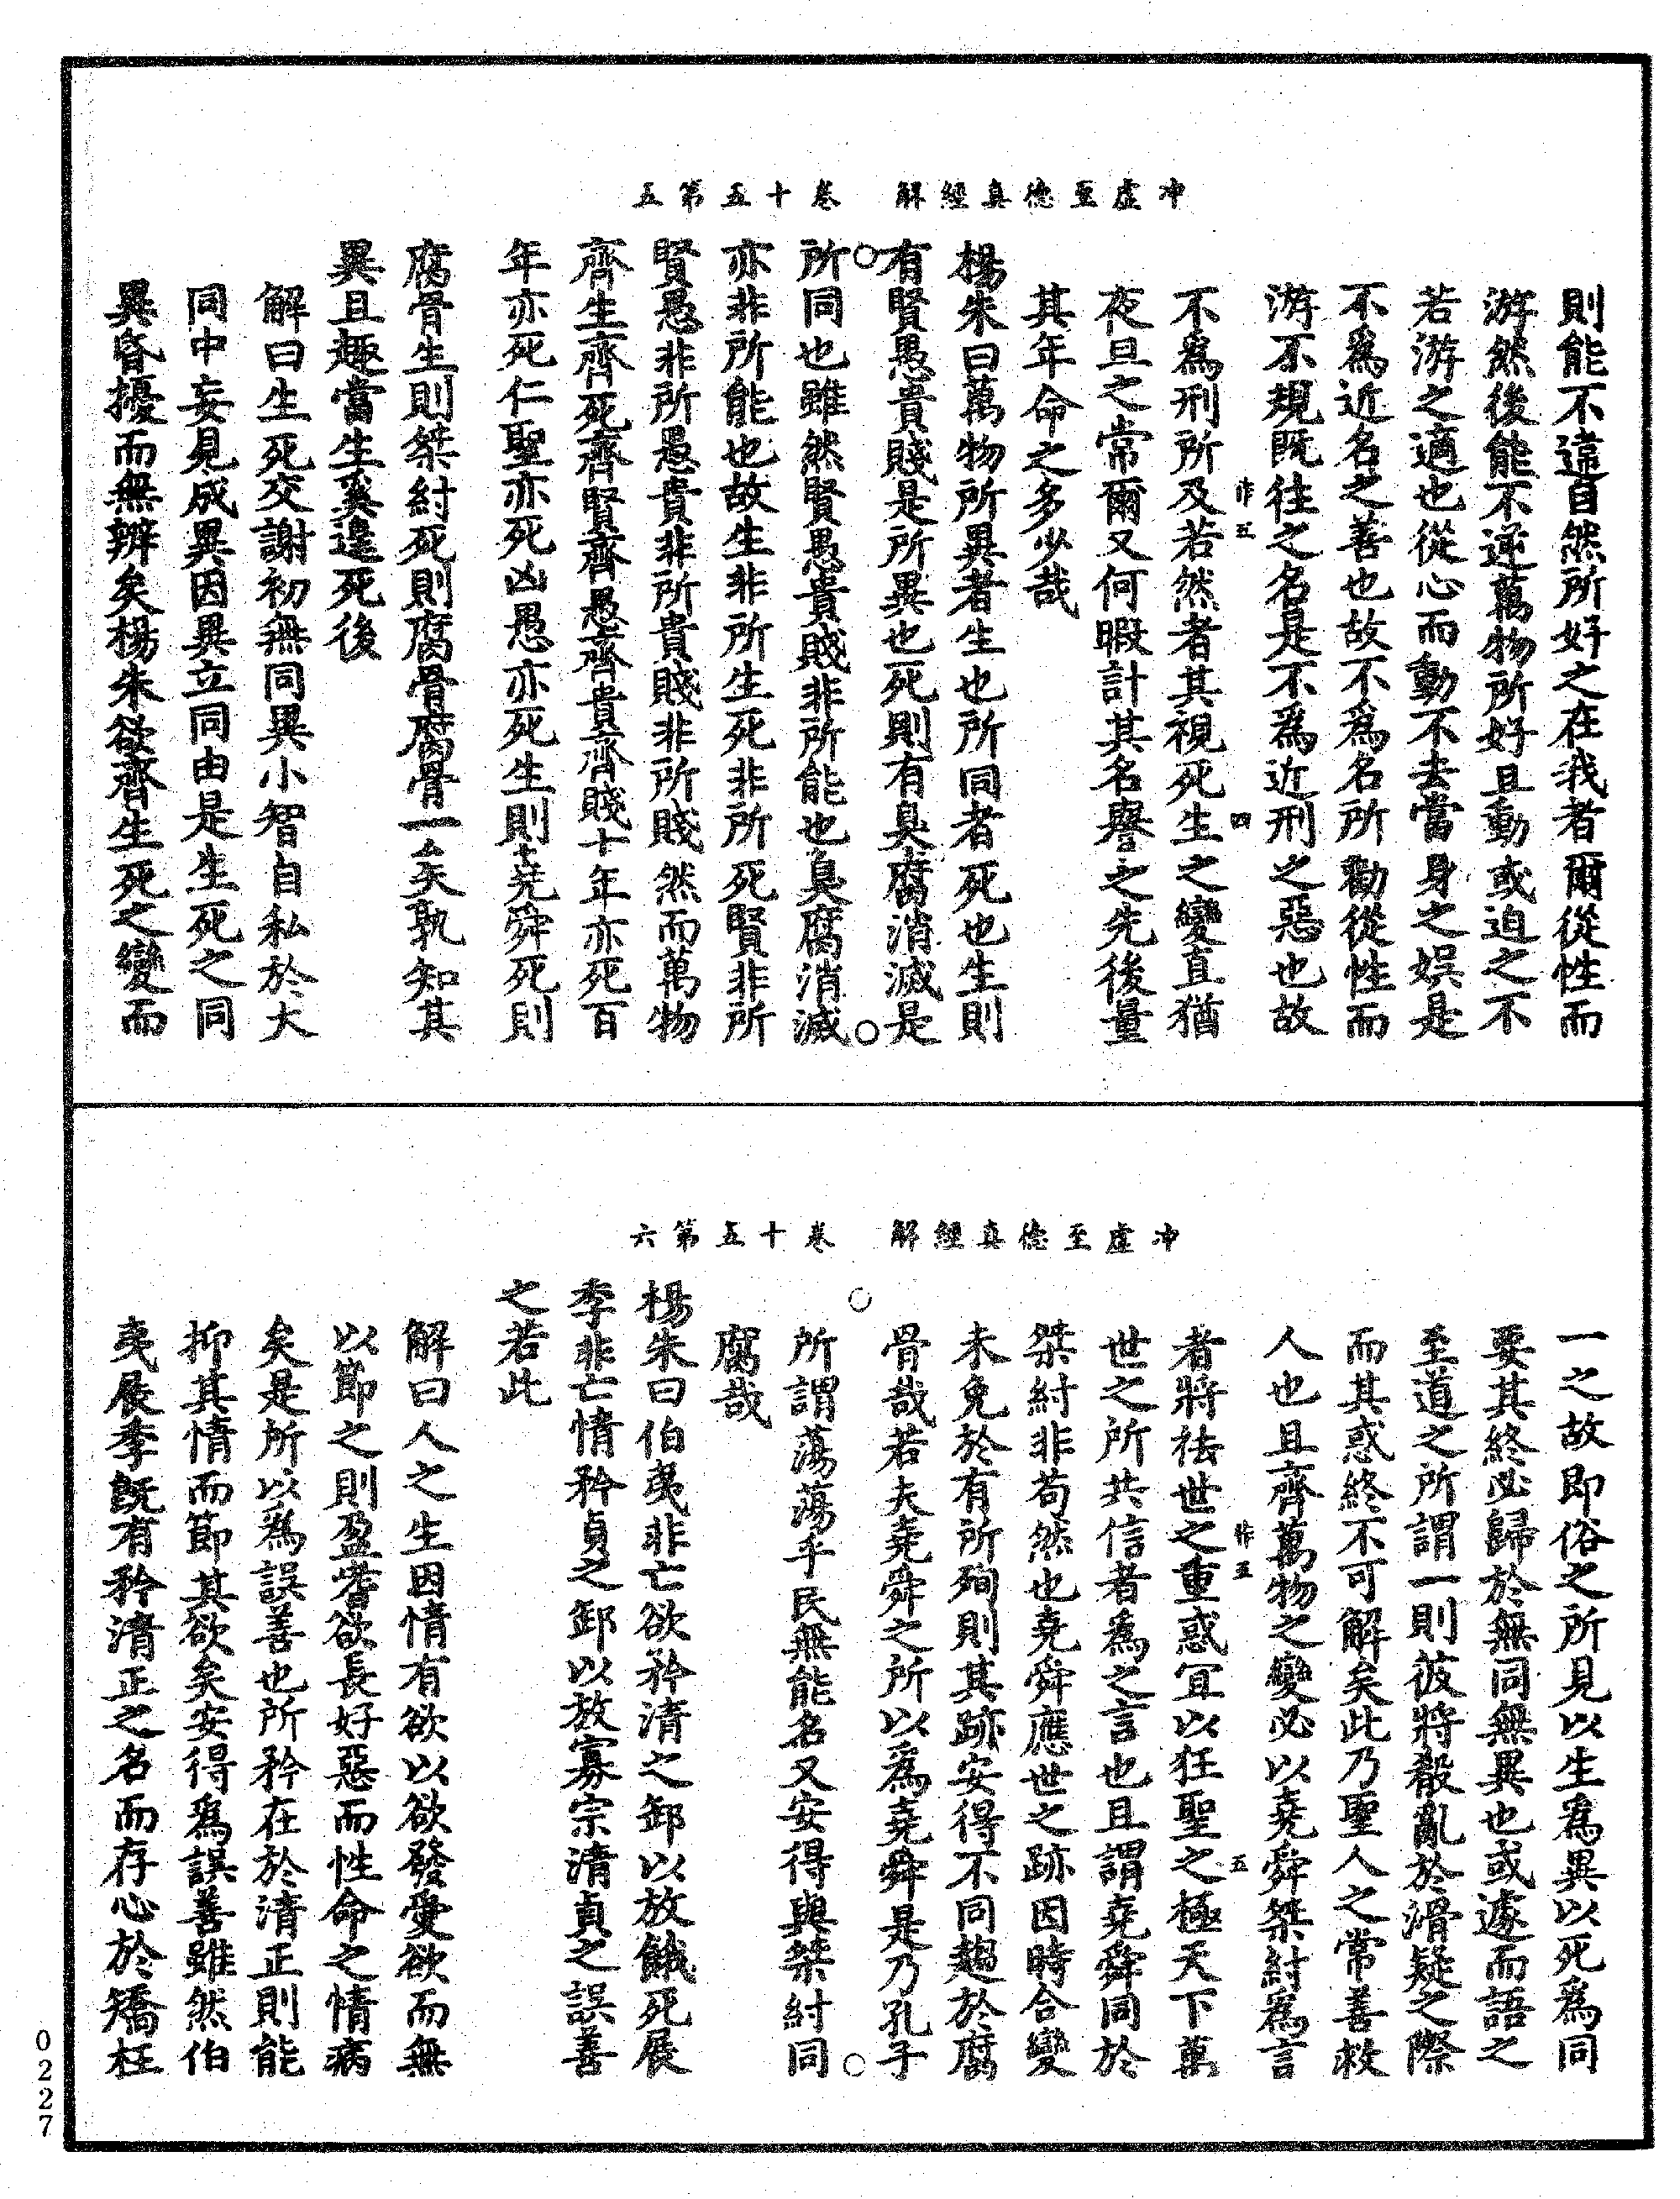 冲虛至德真經解　卷十五第五
則能不違自然所好之在我者爾從性而
游然後能不逆萬物所好且動或迫之不
若游之適也從心而動不去當身之娛是
不爲近名之善也故不爲名所勸從性而
游不規既往之名是不爲近刑之惡也故
作五　四
不爲刑所及若然者其視死生之變直猶
夜旦之常爾又何暇計其名譽之先後量
其年命之多少哉
楊朱曰萬物所異者生也所同者死也生則
有賢愚貴賤是所異也死則有臭腐消滅是
所同也雖然賢愚貴賤非所能也臭腐消滅
亦非所能也故生非所生死非所死賢非所
賢愚非所愚貴非所貴賤非所賤然而萬物
齊生齊死齊賢齊愚齊貴齊賤十年亦死百
年亦死仁聖亦死凶愚亦死生則堯舜死則
腐骨生則桀紂死則腐骨腐骨一矣孰知其
異且趣當生奚遑死後
解曰生死交謝初無同異小智自私於大
同中妄見成異因異立同由是生死之同
異昏擾而無辨矣楊朱欲齊生死之變而
冲虛至德真經解　卷十五第六
一之故即俗之所見以生爲異以死爲同
要其終必歸於無同無異也或遽而語之
至道之所謂一則彼將殽亂於滑疑之際
而其惑終不可解矣此乃聖人之常善救
人也且齊萬物之變必以堯舜桀紂爲言
作五　五
者將祛世之重惑宜以狂聖之極天下萬
世之所共信者爲之言也且謂堯舜同於
桀紂非苟然也堯舜應世之跡因時合變
未免於有所殉則其跡安得不同趨於腐
骨哉若夫堯舜之所以爲堯舜是乃孔子
所謂蕩蕩乎民無能名又安得與桀紂同
腐哉
楊朱曰伯夷非亡欲矜清之卸以放餓死展
季非亡情矜貞之卸以放寡宗清貞之誤善
之若此
解曰人之生因情有欲以欲發愛欲而無
以節之則盈嗜欲長好惡而性命之情病
矣是所以爲誤善也所矜在於清正則能
抑其情而節其欲矣安得爲誤善雖然伯
夷展季既有矜清正之名而存心於矯枉
0227